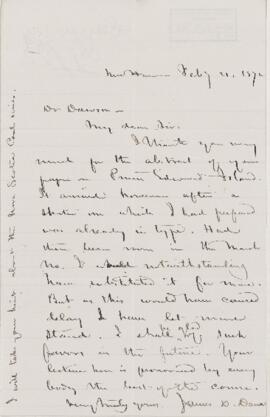 New Haven Feb'y 21, 1872
Dr Dawson -
My dear Sir.
I thank you very
much for the abstract of your
paper on Prince Edward Island.
It arrived however after a
sketch on which I had prepared
was already in type. Had
there been room in the March
No. I would notwithstanding
have substituted it for mine.
But as this would have caused
delay I have let mine
stand. I shall be glad of such
favors in the future. Your
lecture here is pronounced by every
body the best of the course.
Very truly yours, James D. Dana
I will take your hint about the Nova Scotia Coal mines.